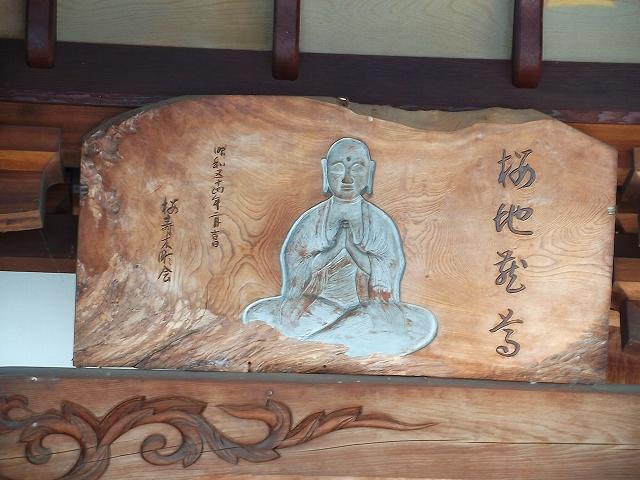 桜地蔵尊
昭和五十四年二月吉日
桜寿木町会